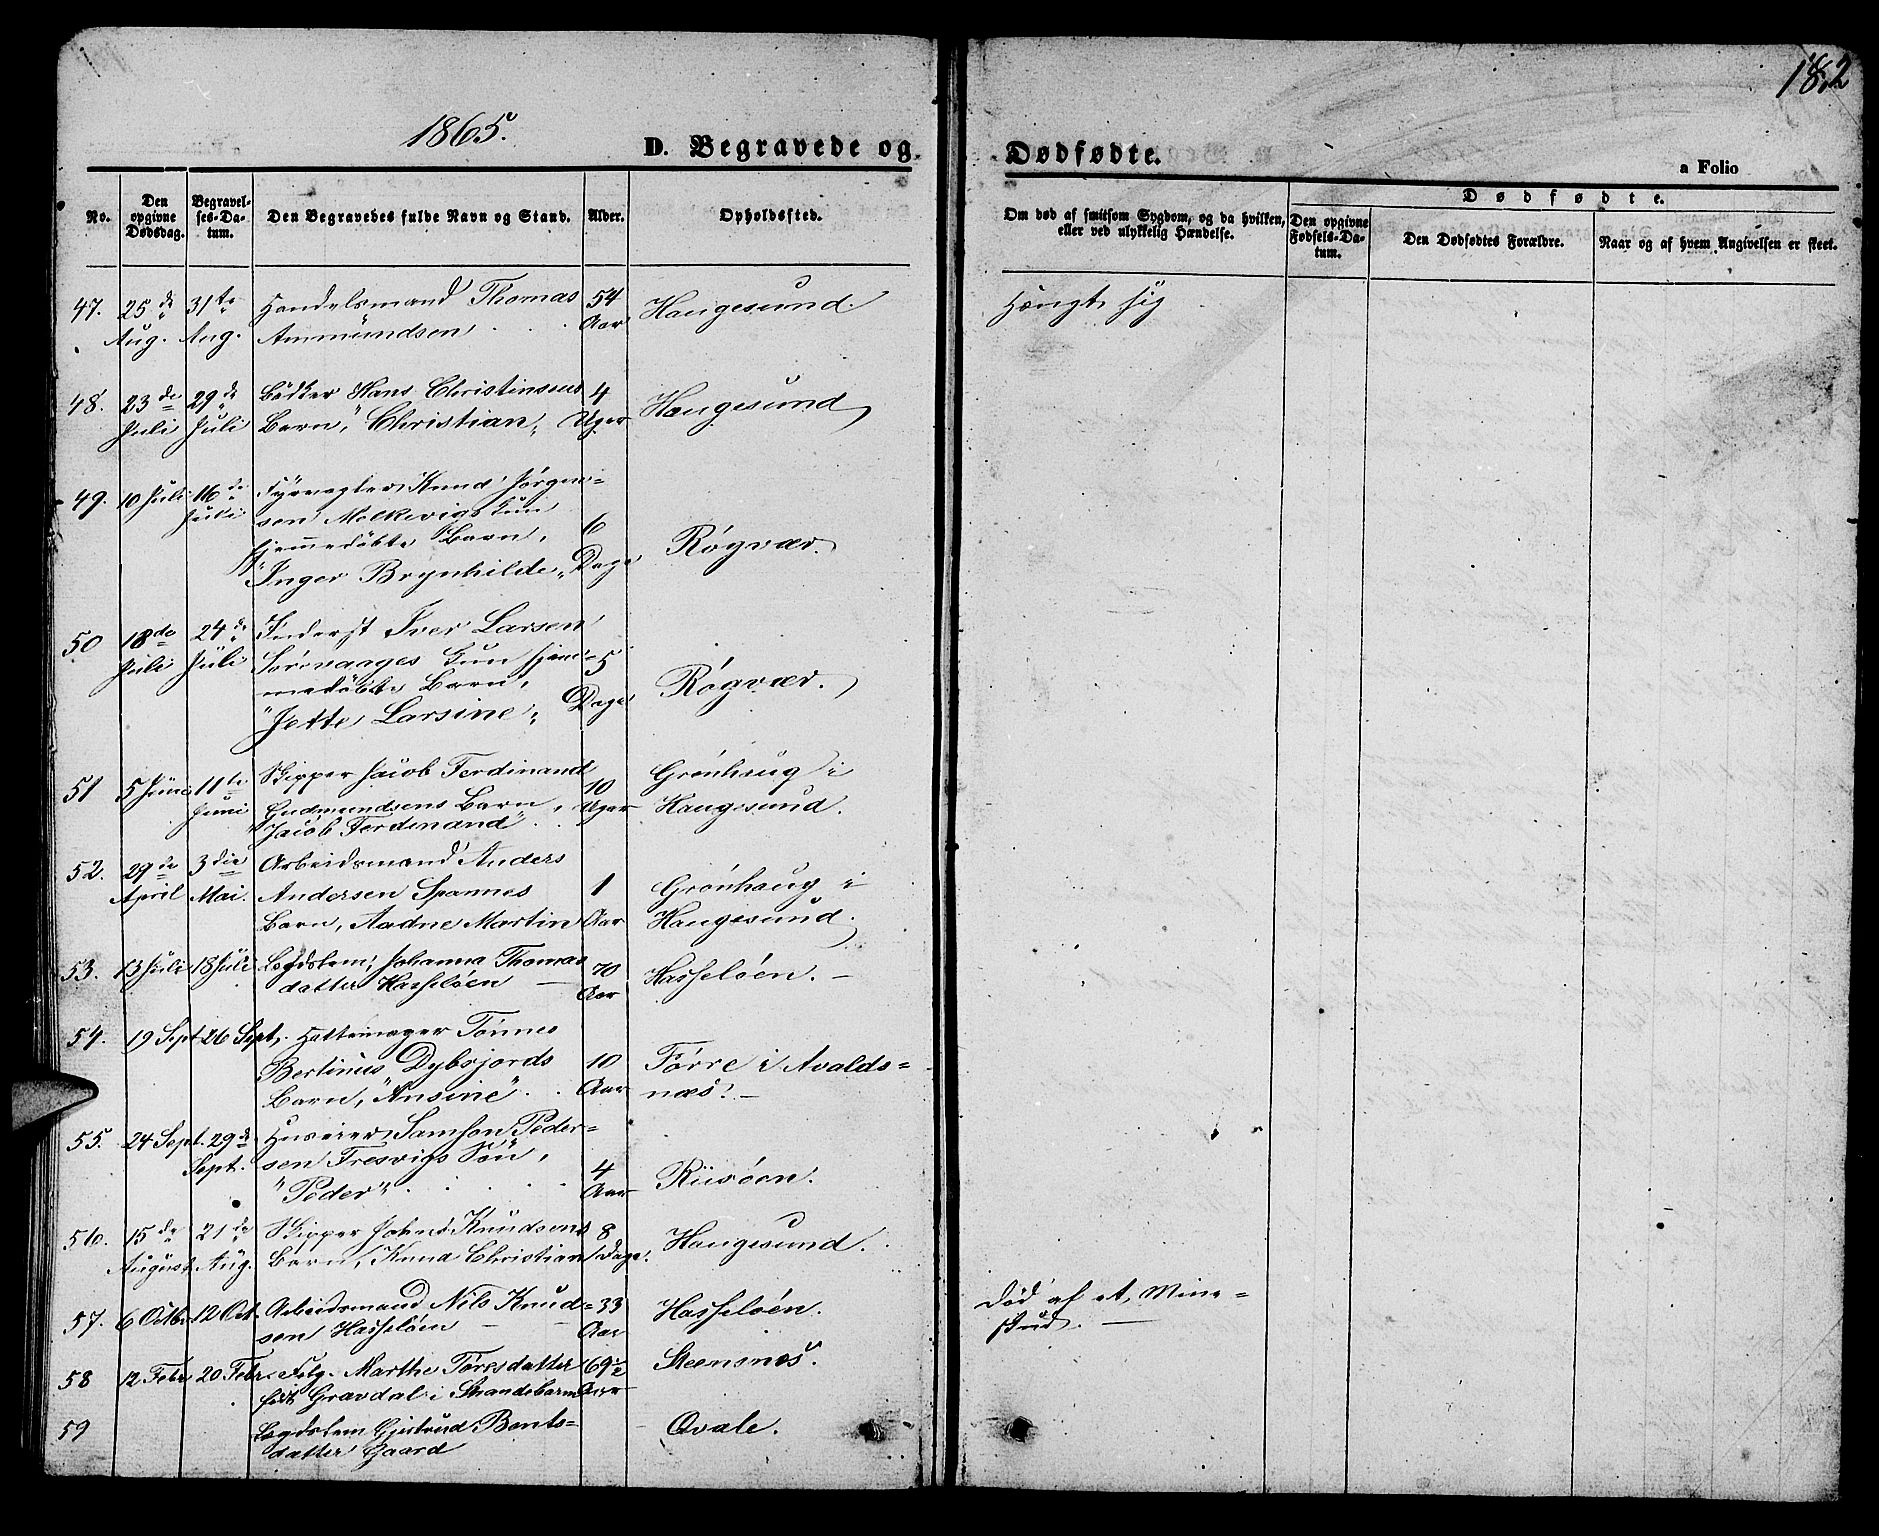 182
1865.
D. Begravede og Dødfødte.
a Folio
No.
Den opgivne Dødsdag.
Begravelses-Datum.
Den Begravedes fulde Navn og Stand.
Alder.
Opholdssted.
Om død af smitsom Sygdom, og da hvilken, eller ved ulykkelig Hændelse.
Dødfødte.
Den opgivne Fødsels-Datum.
Den Dødfødtes Forældre.
Naar og af hvem Angivelsen er skeet.
47. 25de 31te Handelsmand Thomas 54 Haugesund. Hængt sig
Aug. Aug. Ammundsen Aar
48. 23de 29de Bødker Hans Christinsens 4 Haugesund
Juli Juli Barn, "Christian" Uger
49. 10 Juli 16de Fyrvogter Knud Jørgen-
Juli sen Molkevigs
hjemmedöbte Barn, 6 Røgvær.
"Inger Brynhilde" Dage
50 18de 24de Inderst Iver Larsen
Juli Juli Sørevaages hjem- 5
medöbte Barn, Røgvær.
"Jette Larsine" Dage
51 5 Juni 11te Skipper Jacob Ferdinand 10 Grónhaug i
Juni Gudmundsens Barn, Uger Haugesund.
"Jacob Ferdinand"
52. 29de 3die Arbeidsmand Anders
April Mai. Andersen Spannes 1 Grónhaug i
Barn, Aadne Martin Aar Haugesund.
53. 13 Juli 18 Juli Lægdslem, Johanna Thomas 70 Hasseløen. -
datter Hasseløen - Aar
54. 19 Sept. 26 Sept. Hattemager Tønnes
Bertinius Dybsjords 10 Førre i Avalds=
Barn, "Ansine" Aar næs. -
55. 24 Sept. 29de Huseier Samson Peder=
Sept. sen Tresvigs Søn, 4 Riisøen.
"Peder" Aar
56. 15de 21de Skipper John Knudsens 8 Haugesund.
August Aug. Barn, Knud Christian Dage.
57. 6 Octbr 12 Oct. Arbeidsmand Nils Knud= 33 Hasseløen. Død af et Mine=
sen Hasseløen - Aar skud. -
58 12 Febr 20 Febr. Marthe Tøresdatter 69½ Steensnæs.
Gravdal i Strandebarm Aar
59 Lægdslem Gjertrud Bents= Qvale.
datter Gaard